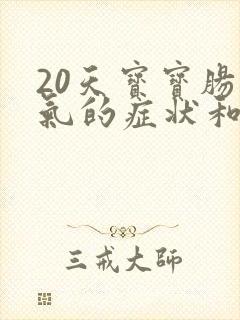 20天寶寶腸
氣的症状和
三戒大師